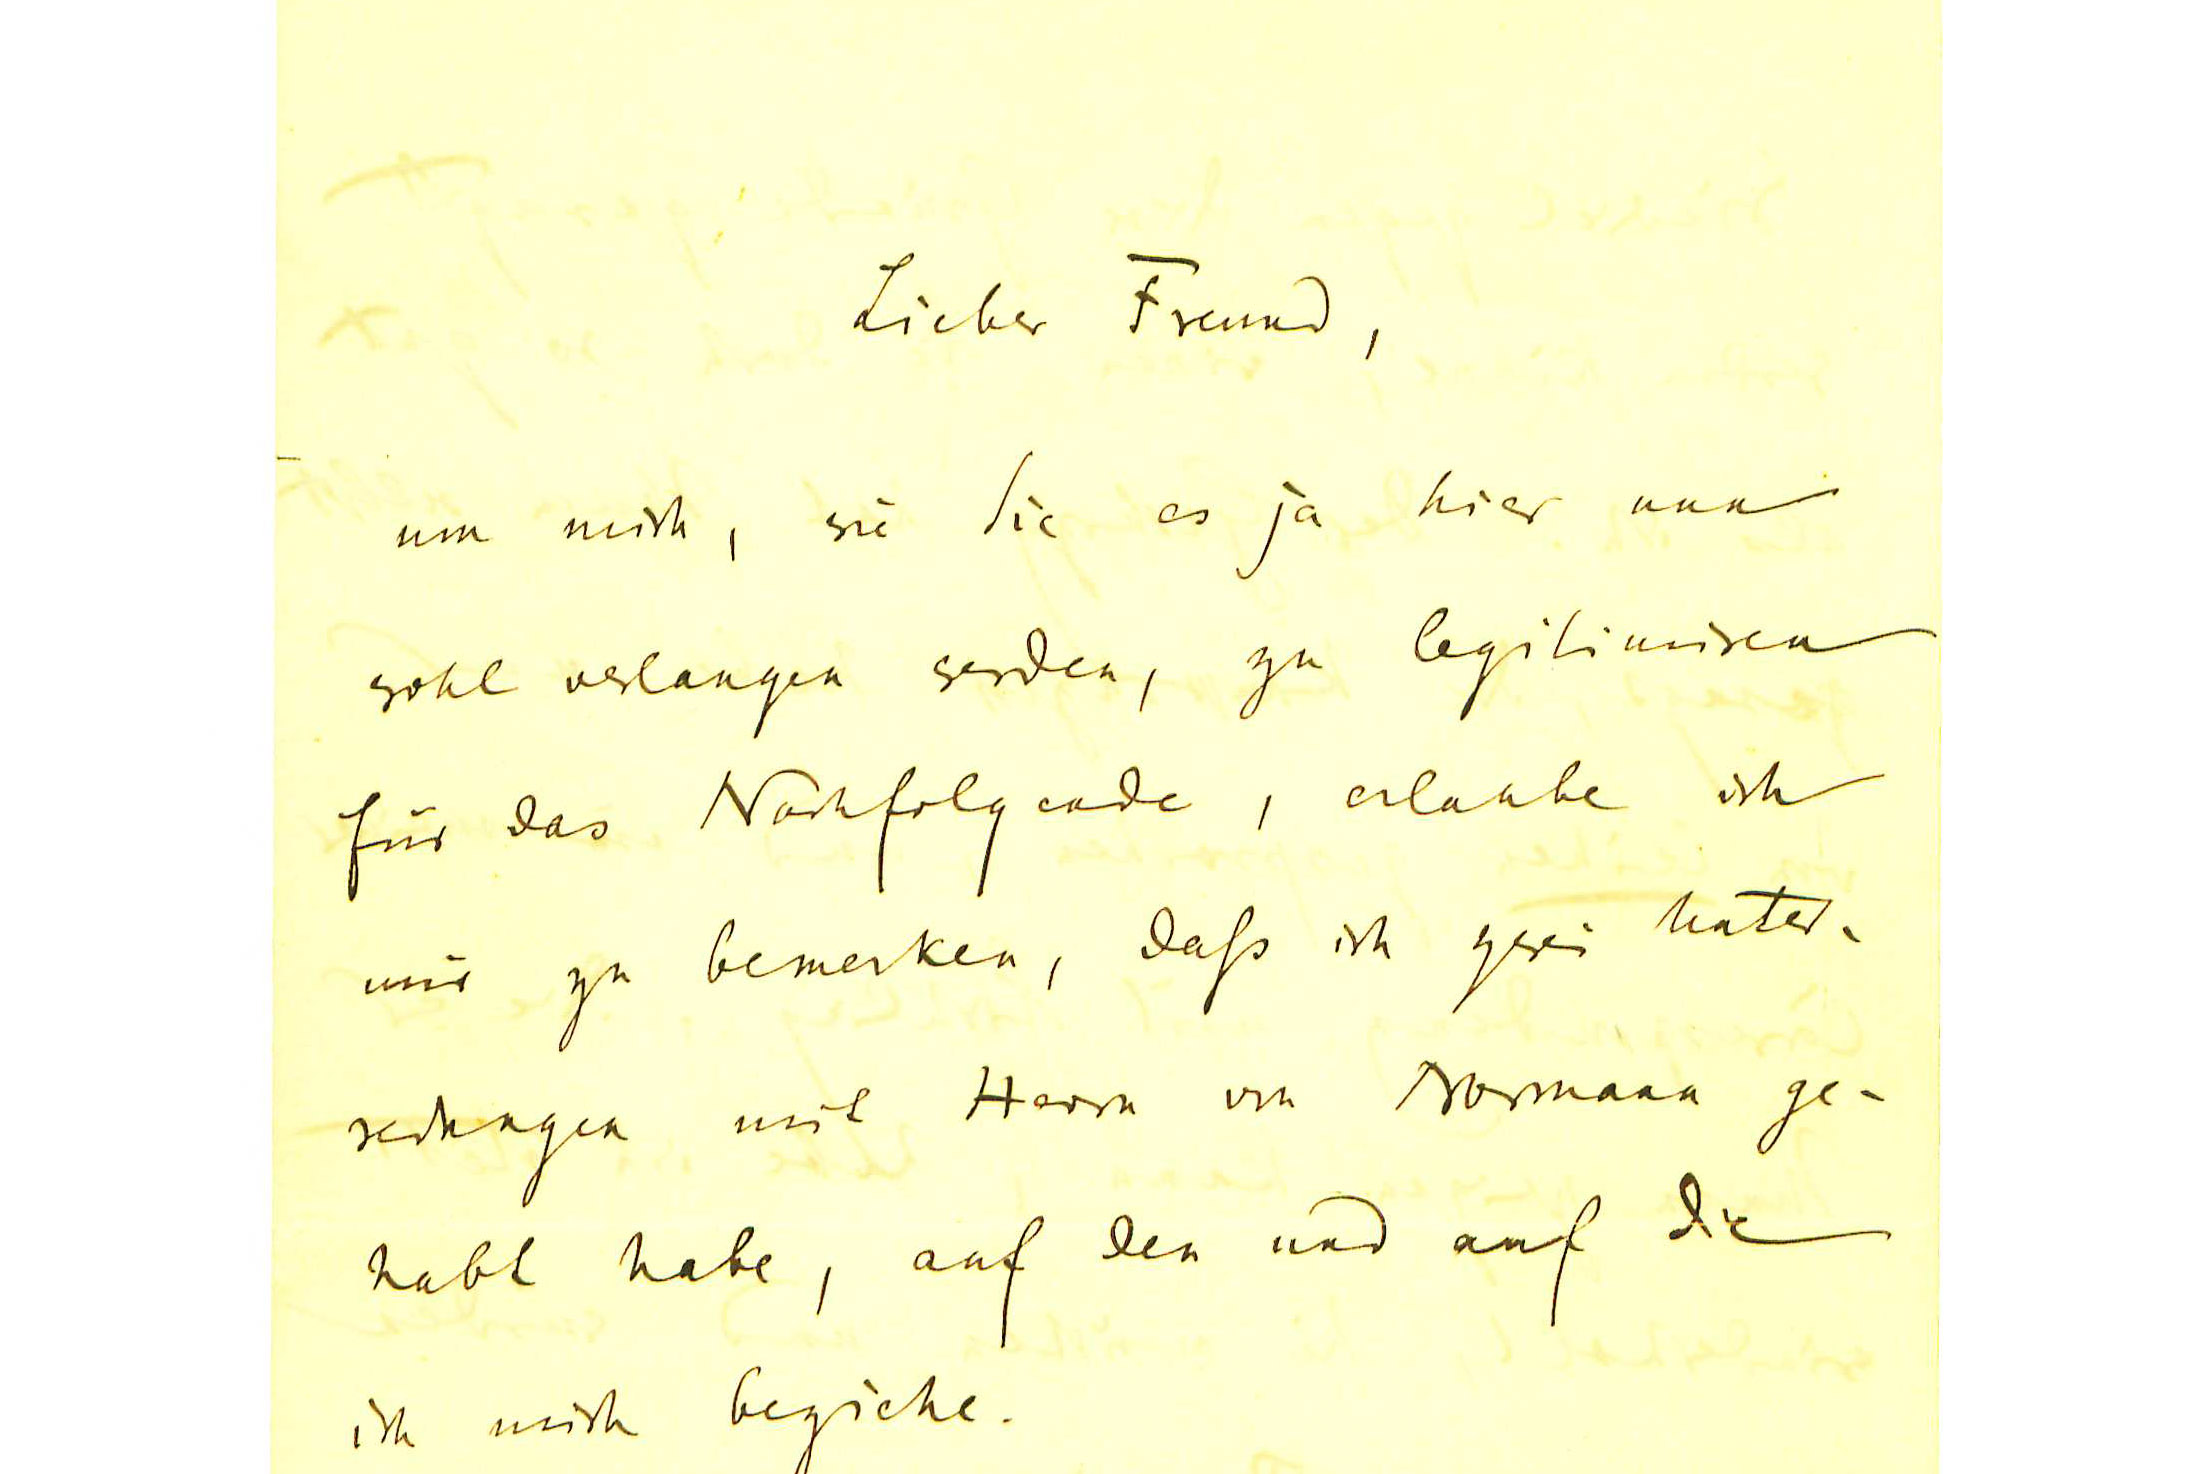 Lieber Freund,
um mich, wie Sie es ja hier nun
wohl verlangen werden, zu legitimiren
für das Nachfolgende, erlaube ich
mir zu bemerken, daß ich zwei Unter-
redungen mit Herrn von Normann ge-
habt habe, auf den und auf die
ich mich beziehe.